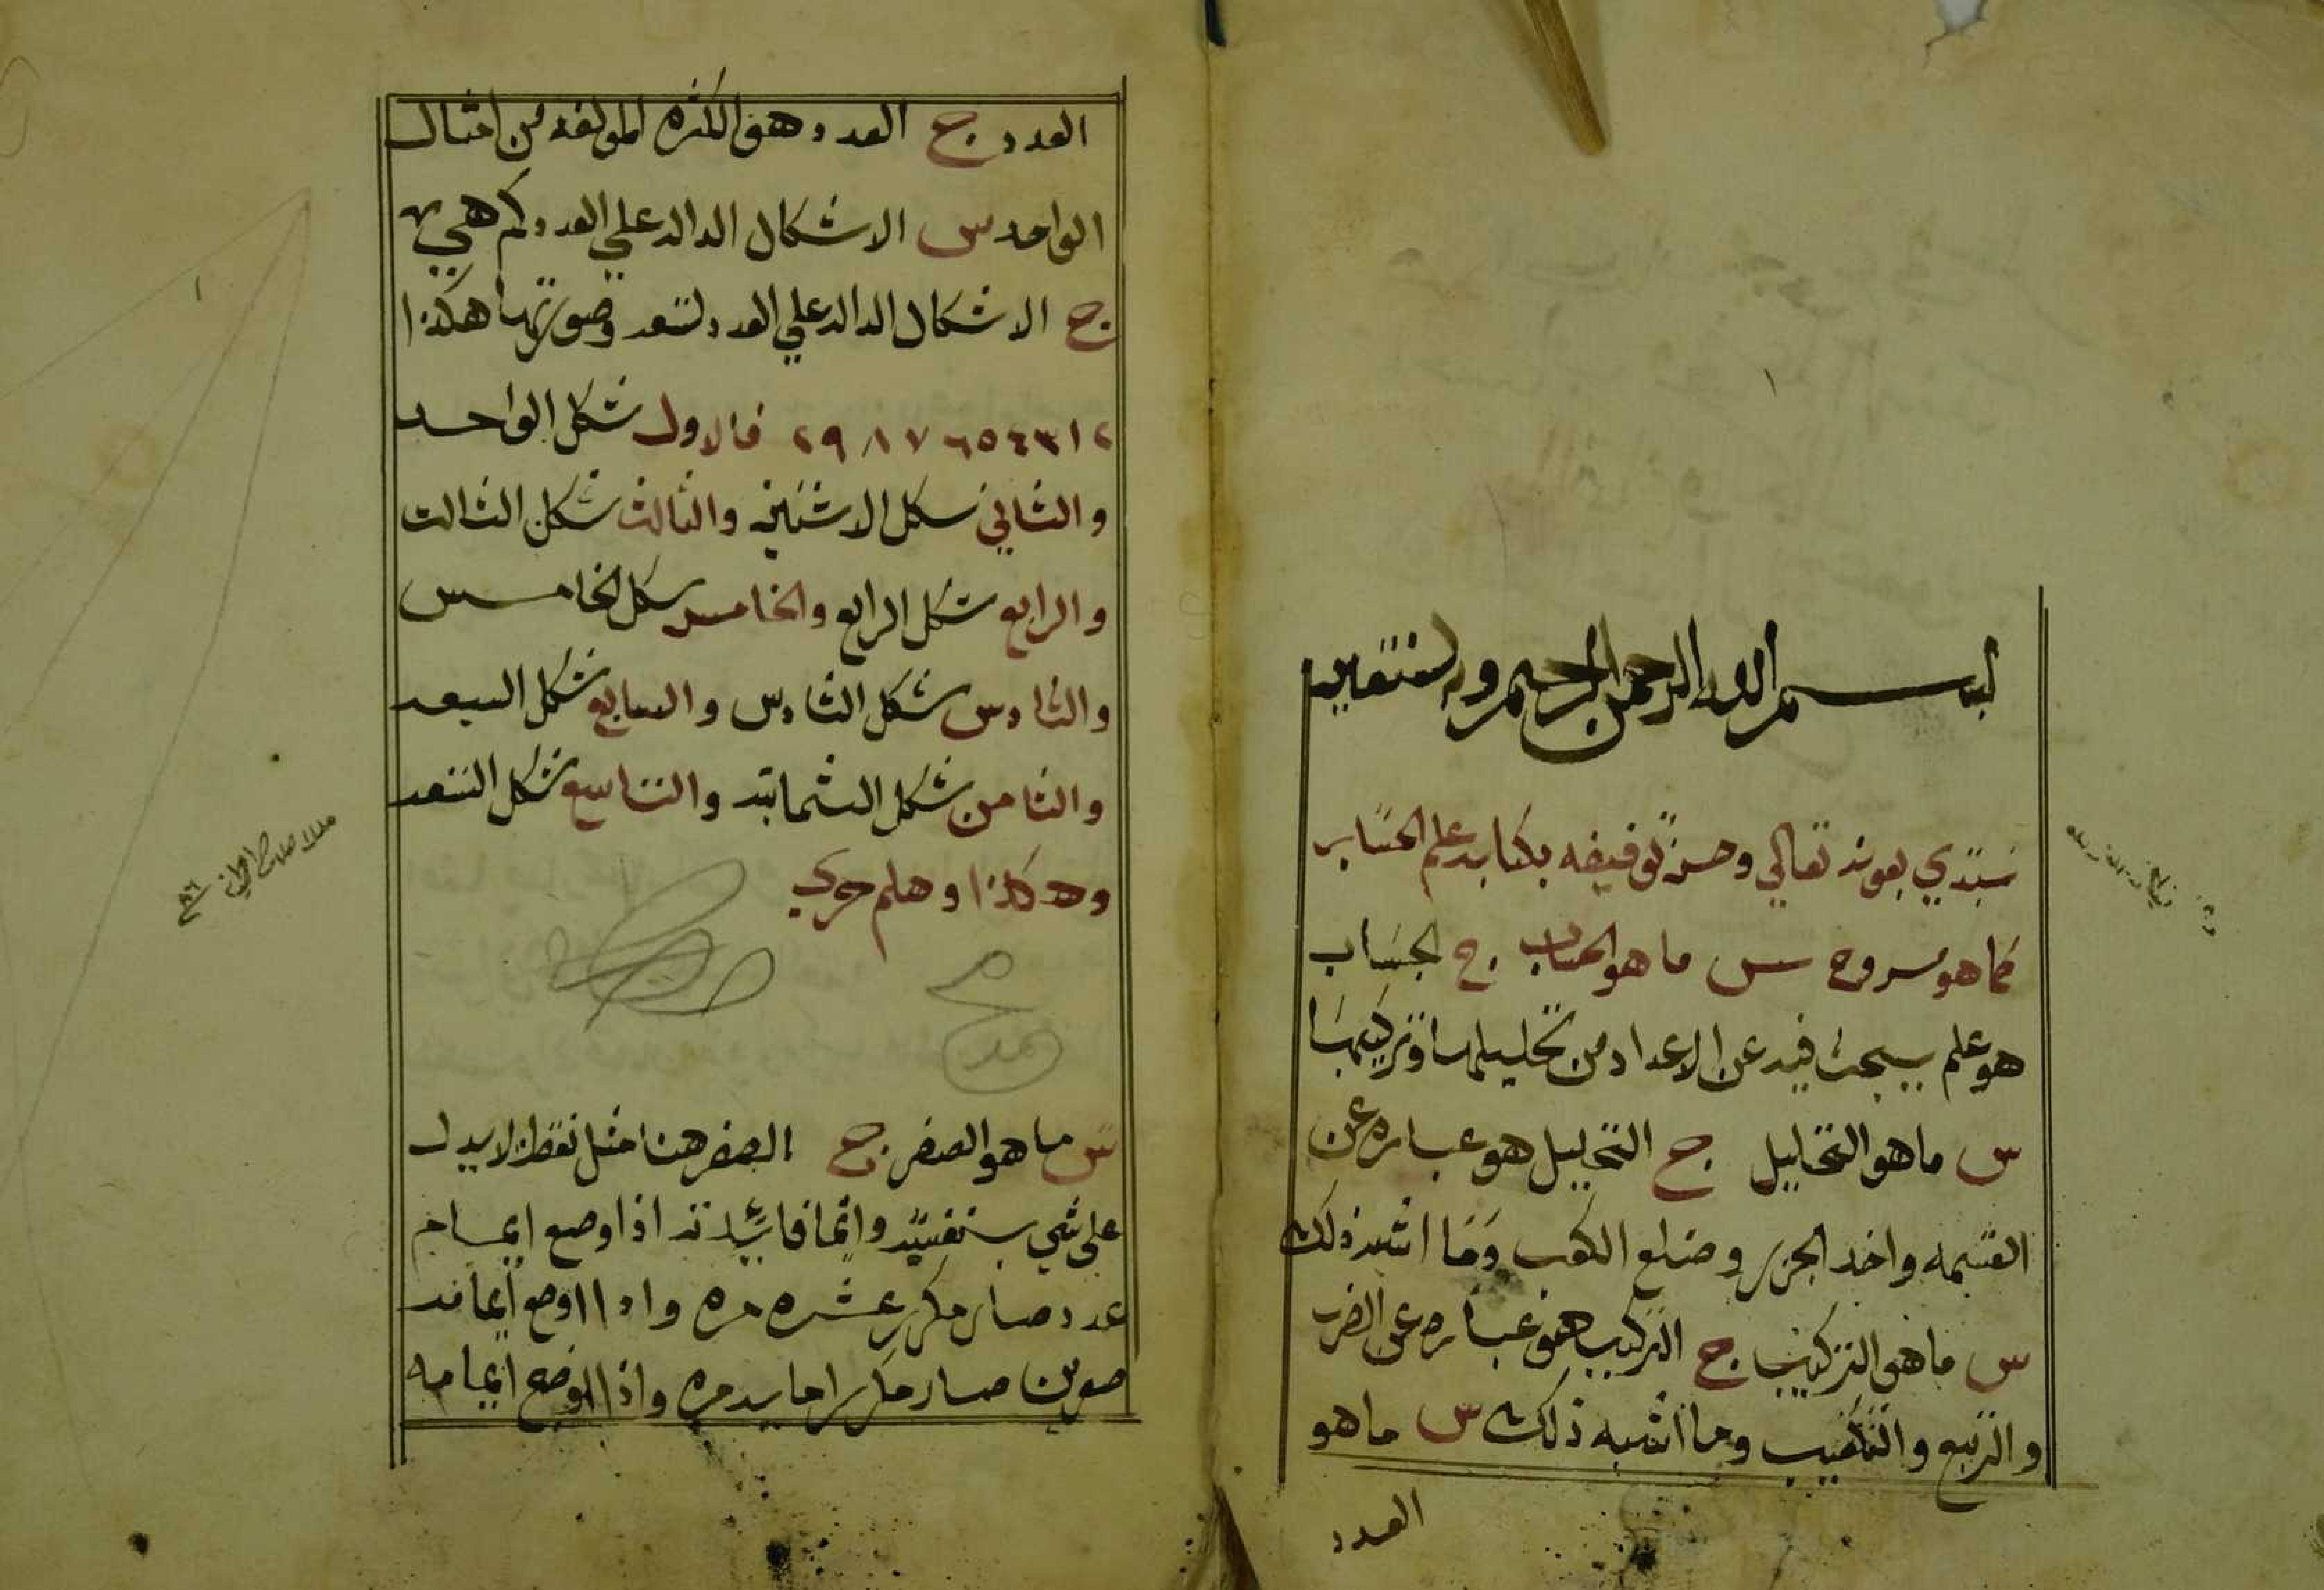 بسم الله الرحمن الرحيم وبه نستعين
نبتدي بعونه تعالي وحسن توفيقه بكتابه علم الحساب
كما هو مشروح س ما هو الحساب ج الحساب
هو علم يبحث فيه عن الاعداد من تحليلها وتركيبها
س ما هو التحليل ج التحليل هو عباره عن
القسمه واخد الجزر وضلع الكعب وما اشبه ذلك
س ما هو التركيب ج التركيب هو عباره عن الضرب
والتربيع والتكعيب وما اشبه ذلك س ما هو
العدد
العدد ج العدد هو الكثره المولفه من امثال
الواحد س الاشكال الداله علي العدد كم هي
ج الاشكال الداله علي العدد تسعه وصورتها هكذا
٢ ١ ٣ ٤ ٥ ٦ ٧ ٨ ٩ ٢ فالاول شكل الواحد
والثاني شكل الاثنين والثالث شكل الثالث
والرابع شكل الرابع والخامس شكل الخامس
والسادس شكل السادس والسابع شكل السبعه
والثامن شكل الثمانيه والتاسع شكل التسعه
وهكذا وهلم جري
س ما هو الصفر ج الصفر هنا مثل نقطه لا يدل
على شي بنفسه وانما فائدته اذا وضع ايمام
عدد صار مكرر عشره مره واداا وضع ايمامه
صفرين صار مكررا مايه مره واذا اوضع ايمامه